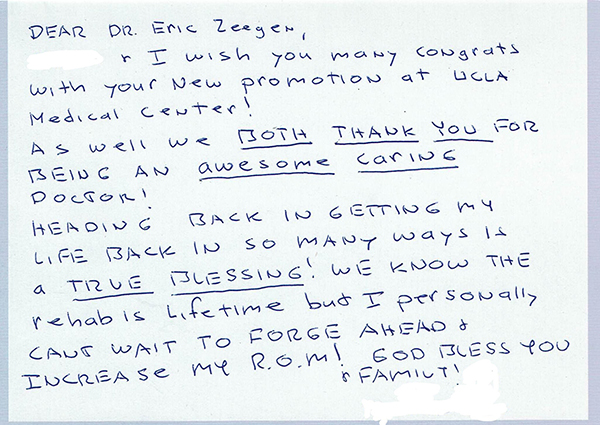 DEAR DR. Eric Zeegen,
& I wish you many congrats
with your New promotion at UCLA
Medical Center!
As well we BOTH THANK YOU FOR
BEING AN awesome caring
DOCTOR!
HEADING BACK IN GETTING MY
LIFE BACK IN SO MANY WAYS IS
a TRUE BLESSING! WE KNOW THE
rehab is Lifetime but I personally
CANT WAIT TO FORGE AHEAD &
INCREASE MY R.O.M! GOD BLESS YOU
& FAMILY!